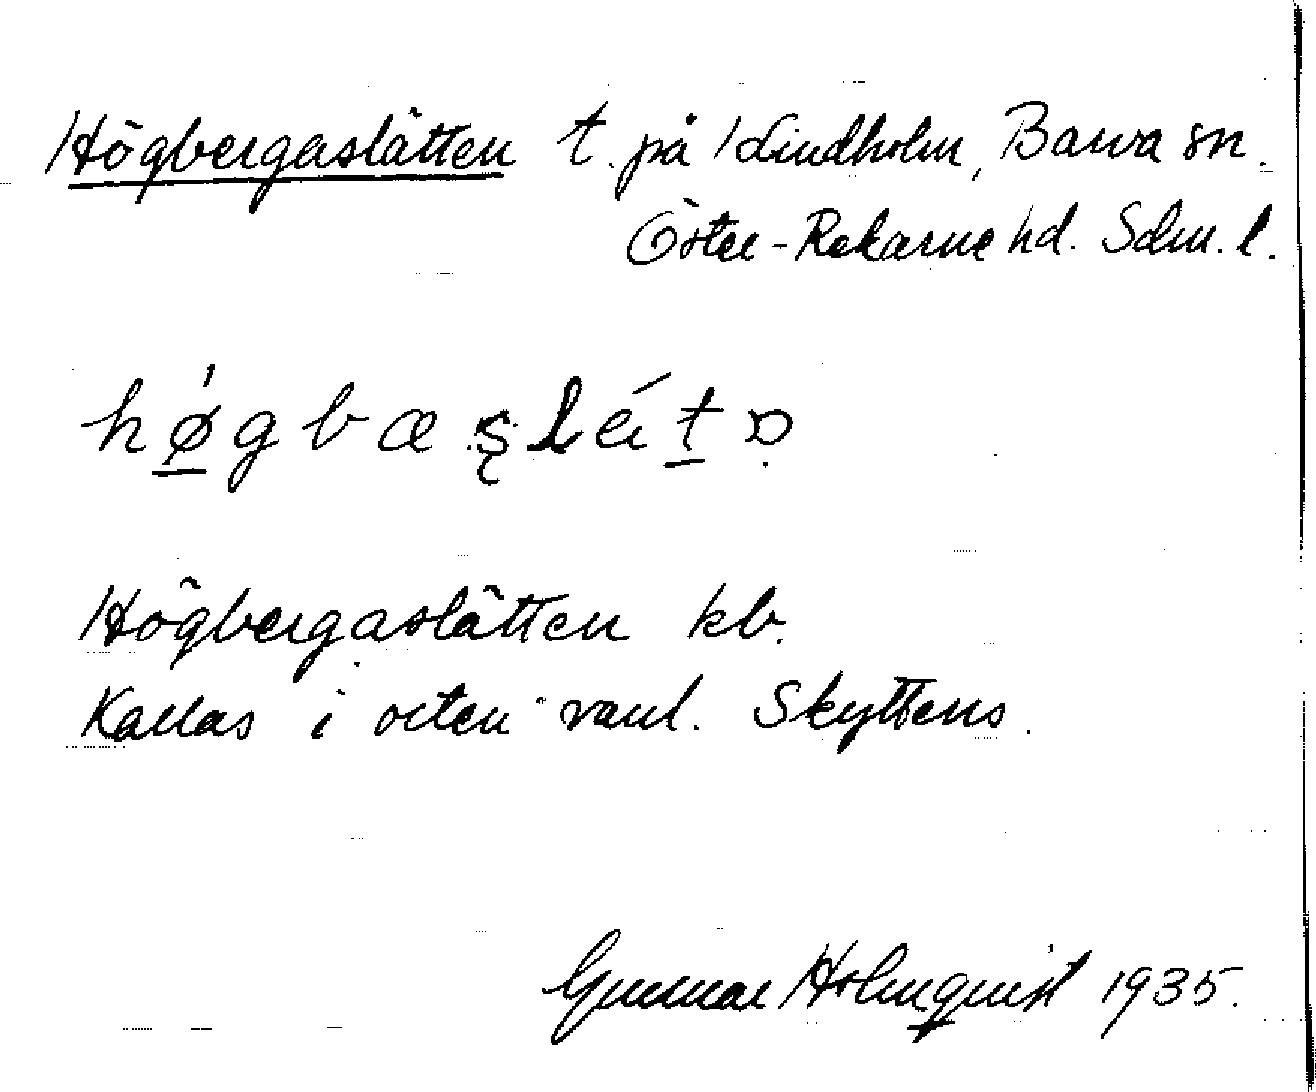 Högbergaslätten t. på /Lindholm, Barva sn.
Öster-Rekarne hd. Sdm. l.
Högbergaslätten kb.
Kallas i orten vanl. Skyttens.
Gunnar Holmquist 1935.